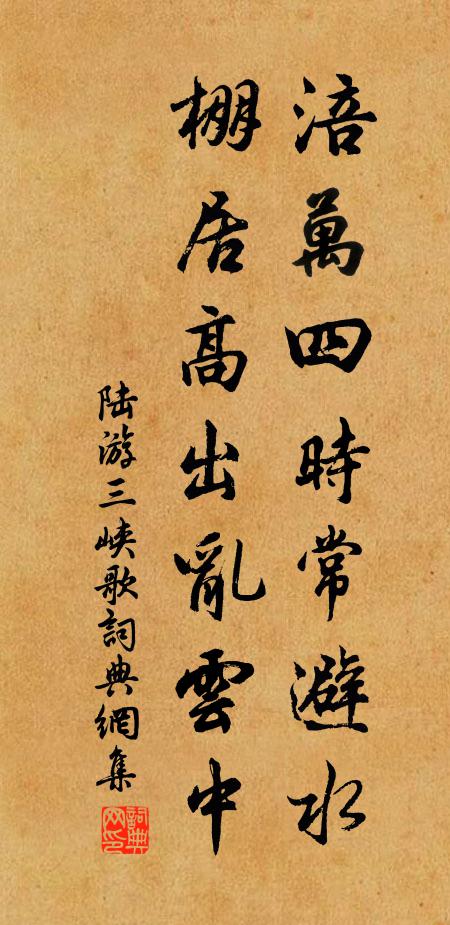 涪萬四時常避水
棚居高出亂雲中
陆游三峡歌詞典網集
詞典網印